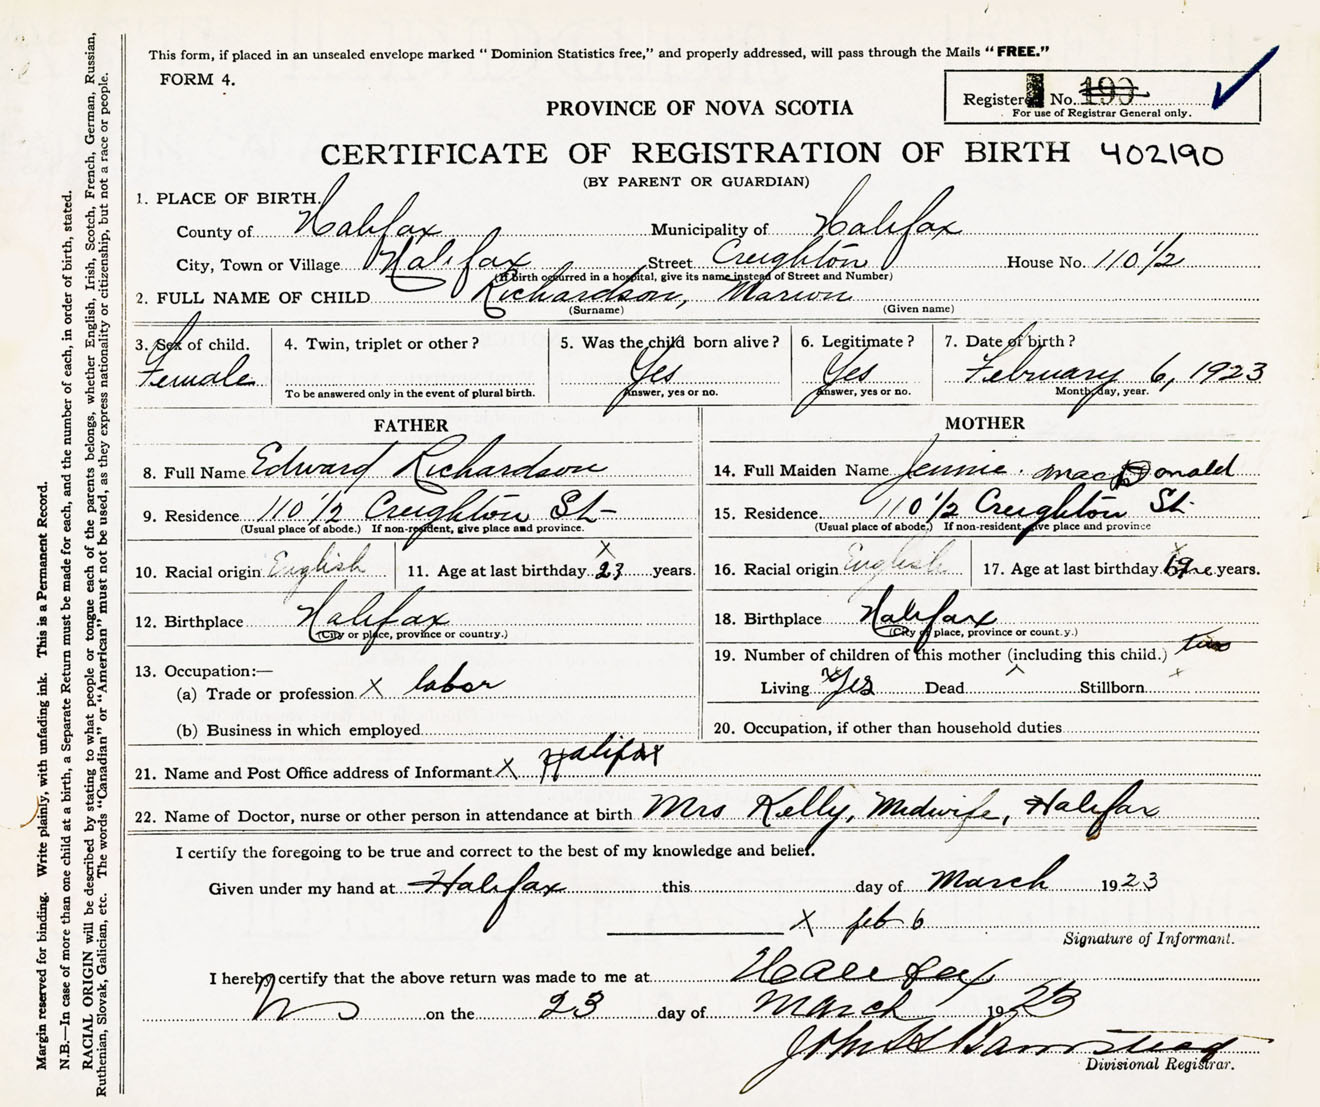 This form, if placed in an unsealed envelope marked “ Dominion Statistics free,” and properly addressed, will pass through the Mails “ FREE.”
FORM 4.
Registered No. 190
For use of Registrar General only.
PROVINCE OF NOVA SCOTIA
CERTIFICATE OF REGISTRATION OF BIRTH 402190
(BY PARENT OR GUARDIAN)
1. PLACE OF BIRTH.
County of Halifax Municipality of Halifax
City, Town or Village Halifax Street Creighton House No. 110 1/2
(If birth occurred in a hospital, give its name instead of Street and Number)
2. FULL NAME OF CHILD Richardson, Marion
(Surname) (Given name)
3. Sex of child. Female
4. Twin, triplet or other ?
To be answered only in the event of plural birth.
5. Was the child born alive ? Yes
Answer, yes or no.
6. Legitimate ? Yes
Answer, yes or no.
7. Date of birth ? February 6, 1923
Month, day, year.
FATHER
8. Full Name Edward Richardson
9. Residence 110 1/2 Creighton St
(Usual place of abode.) If non-resident, give place and province.
10. Racial origin English
11. Age at last birthday 23 years.
12. Birthplace Halifax
(City or place, province or country.)
13. Occupation:—
(a) Trade or profession X labor
(b) Business in which employed
MOTHER
14. Full Maiden Name Jennie MacDonald
15. Residence 110 1/2 Creighton St.
(Usual place of abode.) If non-resident, give place and province
16. Racial origin English
17. Age at last birthday 19 years.
18. Birthplace Halifax
(City or place, province or country.)
19. Number of children of this mother (including this child.) two
Living Yes Dead Stillborn
20. Occupation, if other than household duties
21. Name and Post Office address of Informant X Halifax
22. Name of Doctor, nurse or other person in attendance at birth Mrs Kelly, Midwife, Halifax
I certify the foregoing to be true and correct to the best of my knowledge and belief.
Given under my hand at Halifax this day of March 1923
X feb 6
Signature of Informant.
I hereby certify that the above return was made to me at Halifax
NS on the 23 day of March 1923
John H
Divisional Registrar.
Margin reserved for binding. Write plainly, with unfading ink. This is a Permanent Record.
N.B.—In case of more than one child at a birth, a Separate Return must be made for each, and the number of each, in order of birth, stated.
RACIAL ORIGIN will be described by stating to what people or tongue each of the parents belongs, whether English, Irish, Scotch, French, German, Russian,
Ruthenian, Slovak, Galician, etc. The words “Canadian” or “American” must not be used, as they express nationality or citizenship, but not a race or people.